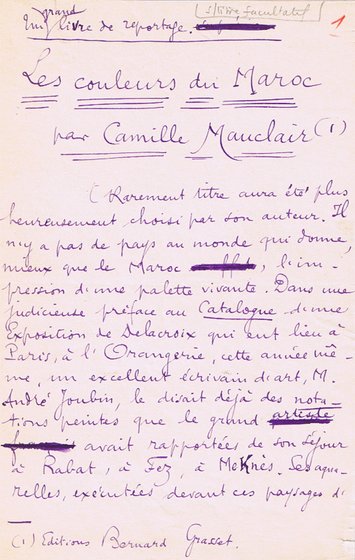 s/titre facultatif
1
Un grand livre de reportage.
Les couleurs du Maroc
par Camille Mauclair (1)
(Rarement titre aura été plus
heureusement choisi par son auteur. Il
n'y a pas de pays au monde qui donne,
mieux que le Maroc, l'im-
pression d'une palette vivante. Dans une
judicieuse préface au Catalogue d'une
Exposition de Delacroix qui eut lieu à
Paris, à l'Orangerie, cette année mê-
me, un excellent écrivain d'art, M.
André Joubin, le disait déjà des nota-
tions peintes que le grand artiste
avait rapportées de son séjour
à Rabat, à Fez, à Meknès. Ses aqua-
relles, exécutées devant ces paysages d'
(1) Editions Bernard Grasset.